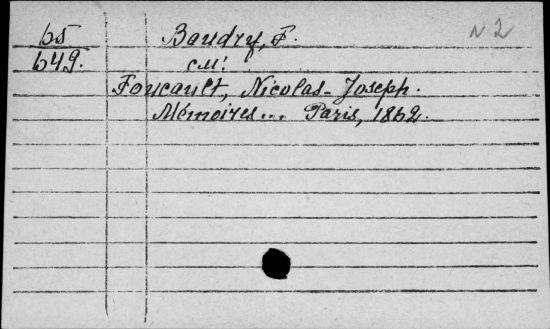 65 Baudry, F. N 2
649. см:
Foucault, Nicolas-Joseph.
Mémoires... Paris, 1862.